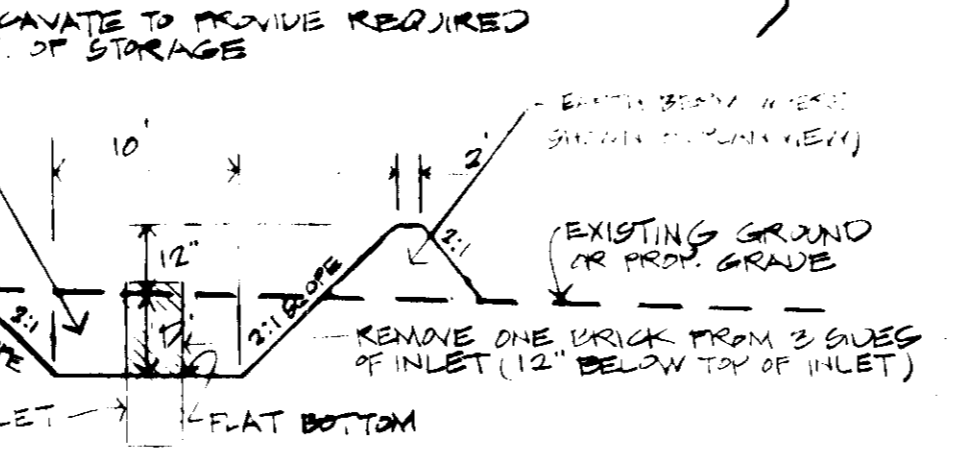 CAVATE TO PROVIDE REQUIRED
. OF STORAGE
10'
2'
EARTH BERM WHERE
SHOWN IN PLAN VIEW)
12"
2:1
EXISTING GROUND
OR PROP. GRADE
2:1
2:1 SLOPE
REMOVE ONE BRICK FROM 3 SIDES
OF INLET (12" BELOW TOP OF INLET)
LET
FLAT BOTTOM